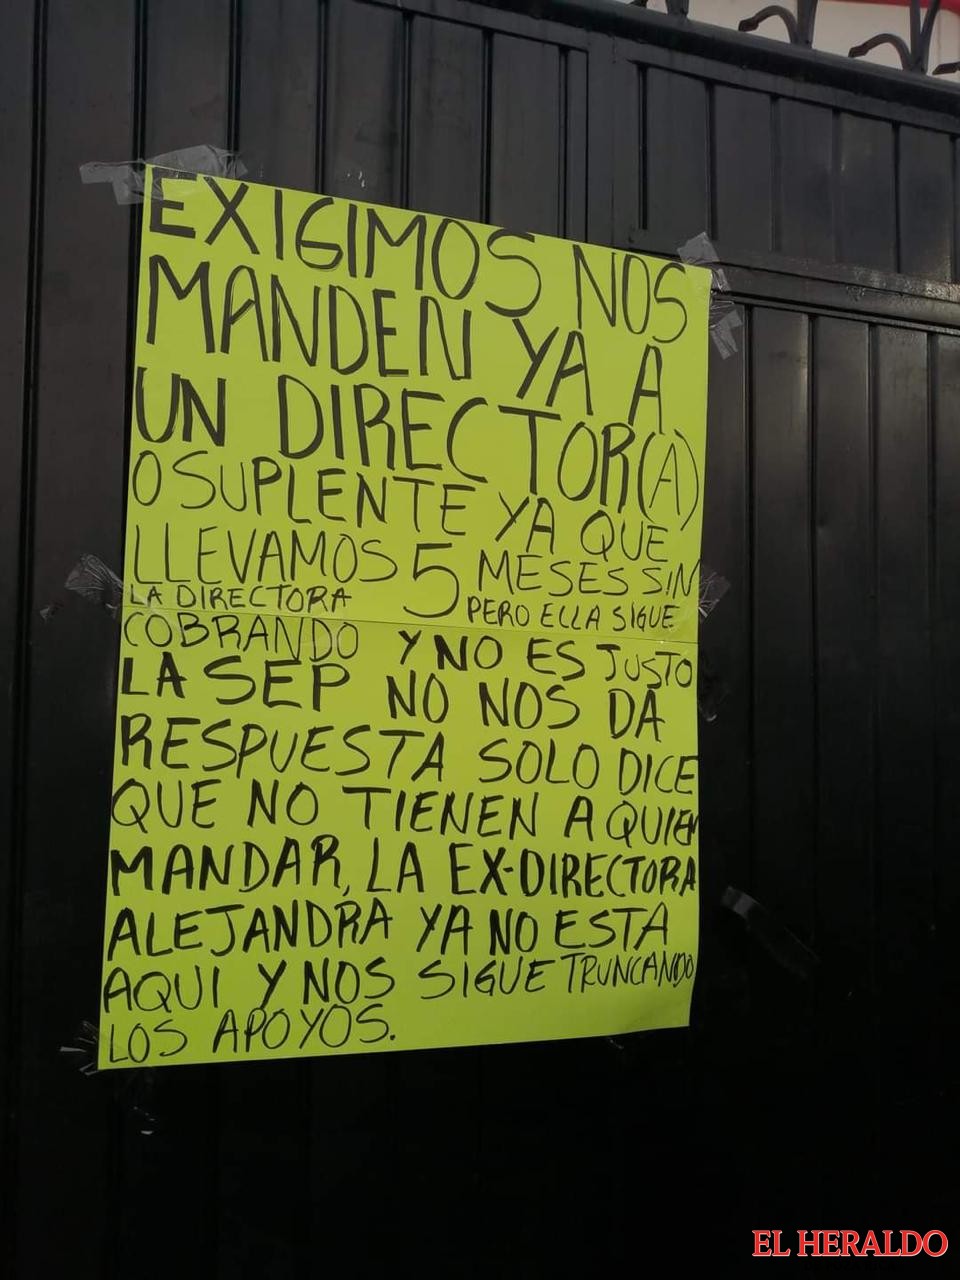 EXIGIMOS NOS
MANDEN YA A
UN DIRECTOR(A)
O SUPLENTE YA QUE
LLEVAMOS 5 MESES SIN
LA DIRECTORA PERO ELLA SIGUE
COBRANDO Y NO ES JUSTO
LA SEP NO NOS DA
RESPUESTA SOLO DICE
QUE NO TIENEN A QUIEN
MANDAR, LA EX-DIRECTORA
ALEJANDRA YA NO ESTA
AQUI Y NOS SIGUE TRUNCANDO
LOS APOYOS.
EL HERALDO